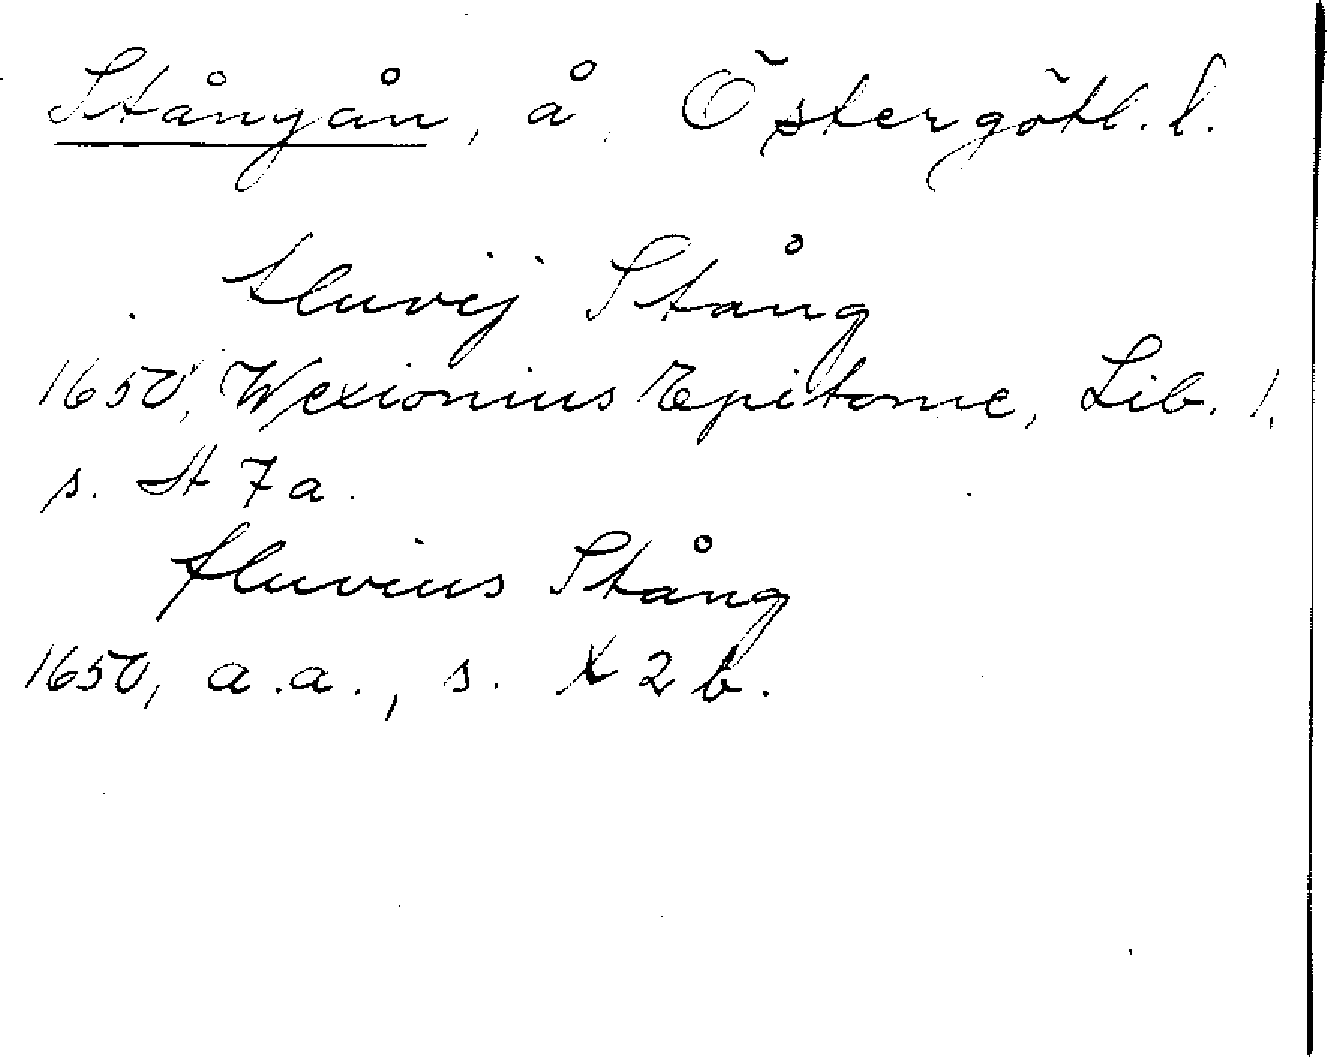 Stångån, å, Östergötl. l.
fluvij Stång
1650, Wexionius Epitome, Lib. 1.
s. A 7 a.
fluvius Stång
1650, a.a., s. X 2 b.